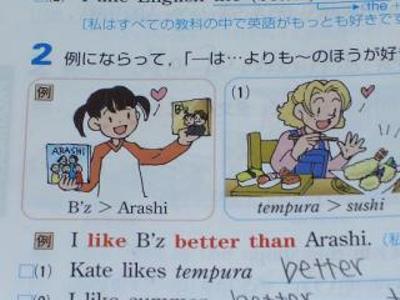 I like English the
the +
[私はすべての教科の中で英語がもっとも好きです
2 例にならって，「―は…よりも～のほうが好
例
B'z
ARASHI
B'z > Arashi
(1)
tempura > sushi
例 I like B'z better than Arashi. (私
(1) Kate likes tempura better
I like summer better